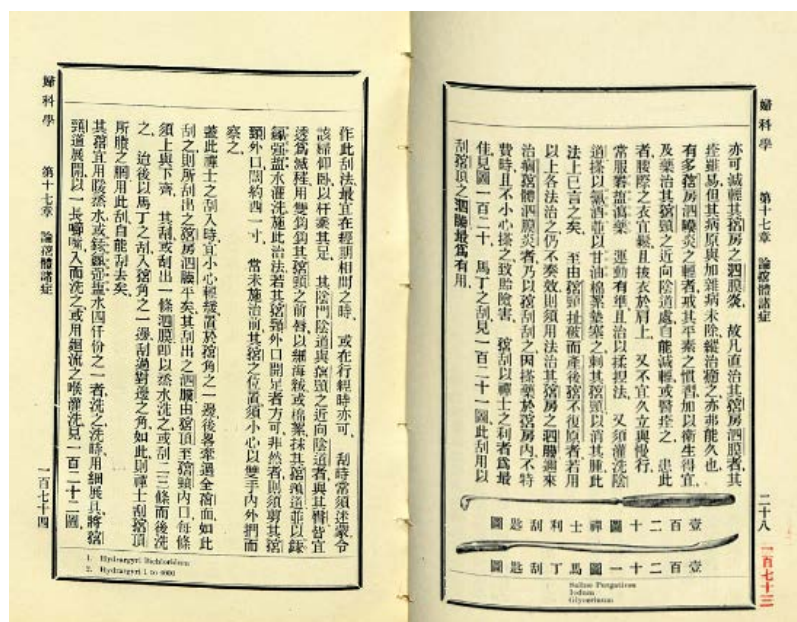 婦科學 第十七章 論𤶸體諸症
二十八
一百七十三
亦可減輕其𤶸房之泗膜炎 故凡直治其𤶸房泗膜者其
痊雖易但其病原與加雜病未除縱治癒之亦弗能久也
有多𤶸房泗膜炎之輕者戒其平素之慣習加以衛生得宜
及藥治其𤶸頸之近向陰道處自能減輕或醫痊之 患此
者腰際之衣宜鬆且拔衣於肩上 又不宜久立與慢行
常服鹽瀉藥 運動有準且治以揉捏法 又須灌洗陰
道搽以氣酒並以甘油棉絮墊塞之刺其𤶸頸以消其腫此
法上已言之矣 至由𤶸頸扯破而產後𤶸不復原者若用
以上各法治之仍不奏效則須用法治其𤶸房之泗膜邇來
治病𤶸體泗膜炎者乃以𤶸刮刮之因搽藥於𤶸房內不特
費時且不小心搽之致胎險害 𤶸刮以禪士之利者爲最
佳見圖一百二十 馬丁之刮見一百二十一圖此刮用以
刮𤶸頂之泗膜最爲有用
壹百二十圖禪士利刮匙圖
壹百二十一圖馬丁刮匙圖
Saline Purgatives
Iodum
Glycerinum
作此刮法最宜在經期相間之時 或在行經時亦可 刮時常須迷蒙令
該婦仰臥以杆紮其足 其陰門陰道與𤶸頸之近向陰道者與其臀皆宜
透爲滅種用雙鈎鈎其𤶸頸之前脣以細海絨或棉絮抹其𤶸頸道並以
強鹽水灌洗施此治法若其𤶸頸外口開足者方可非然者則須剪其𤶸
頸外口闊約四一寸 當未施治前其𤶸之位置須小心以雙手內外捫而
察之
蓋此禪士之刮入時宜小心輕緩置於𤶸角之一邊後畧牽過全𤶸面如此
刮之則所刮出之𤶸房泗膜平矣其刮出之泗膜由𤶸頂至𤶸頸內口每條
須上與下齊 其刮或刮出一條泗膜即以熱水洗之或刮二三條而後洗
之 迨後以馬丁之刮入𤶸角之一邊刮過對邊之角如此則禪士刮𤶸頂
所賸之膶用此刮自能刮去矣
其𤶸宜用暖熱水或鹽水四仟份之一者洗之洗時用細展具將𤶸
頸道展開以一長唧嘴入而洗之或用廻流之喉灌洗見一百二十二圖
1. Hydrargyri Bichloridum
2. Hydrargyri 1 to 4000
婦科學 第十七章 論𤶸體諸症
一百七十四